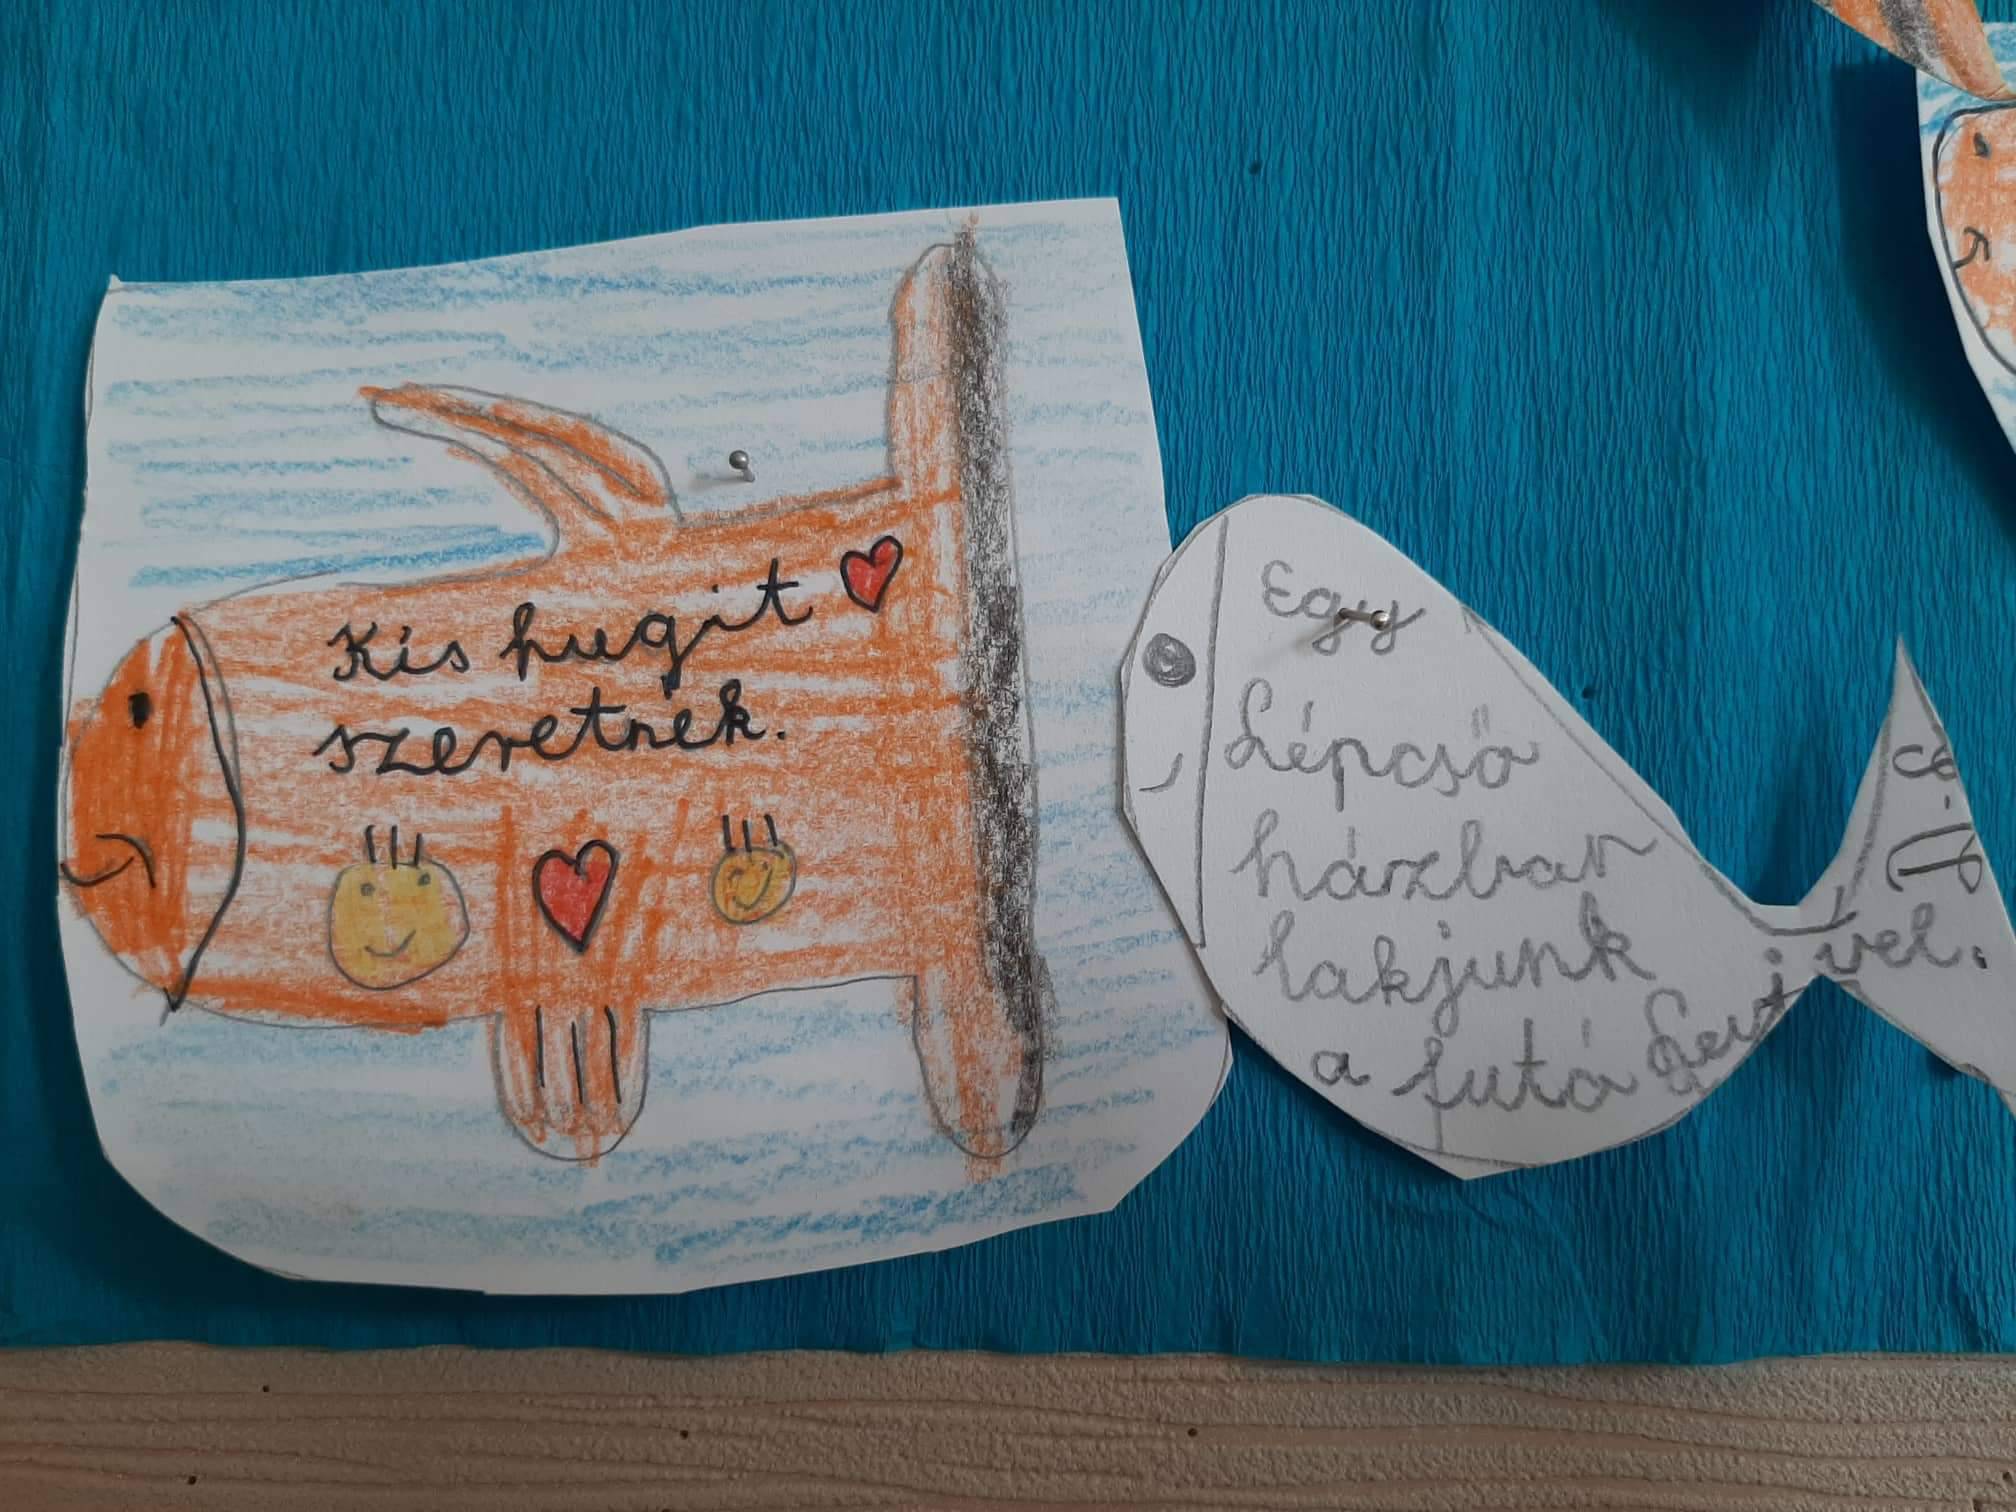 Kis hugit
szeretnék.
Egy
Lépcső
házban
lakjunk
a futó
vel.